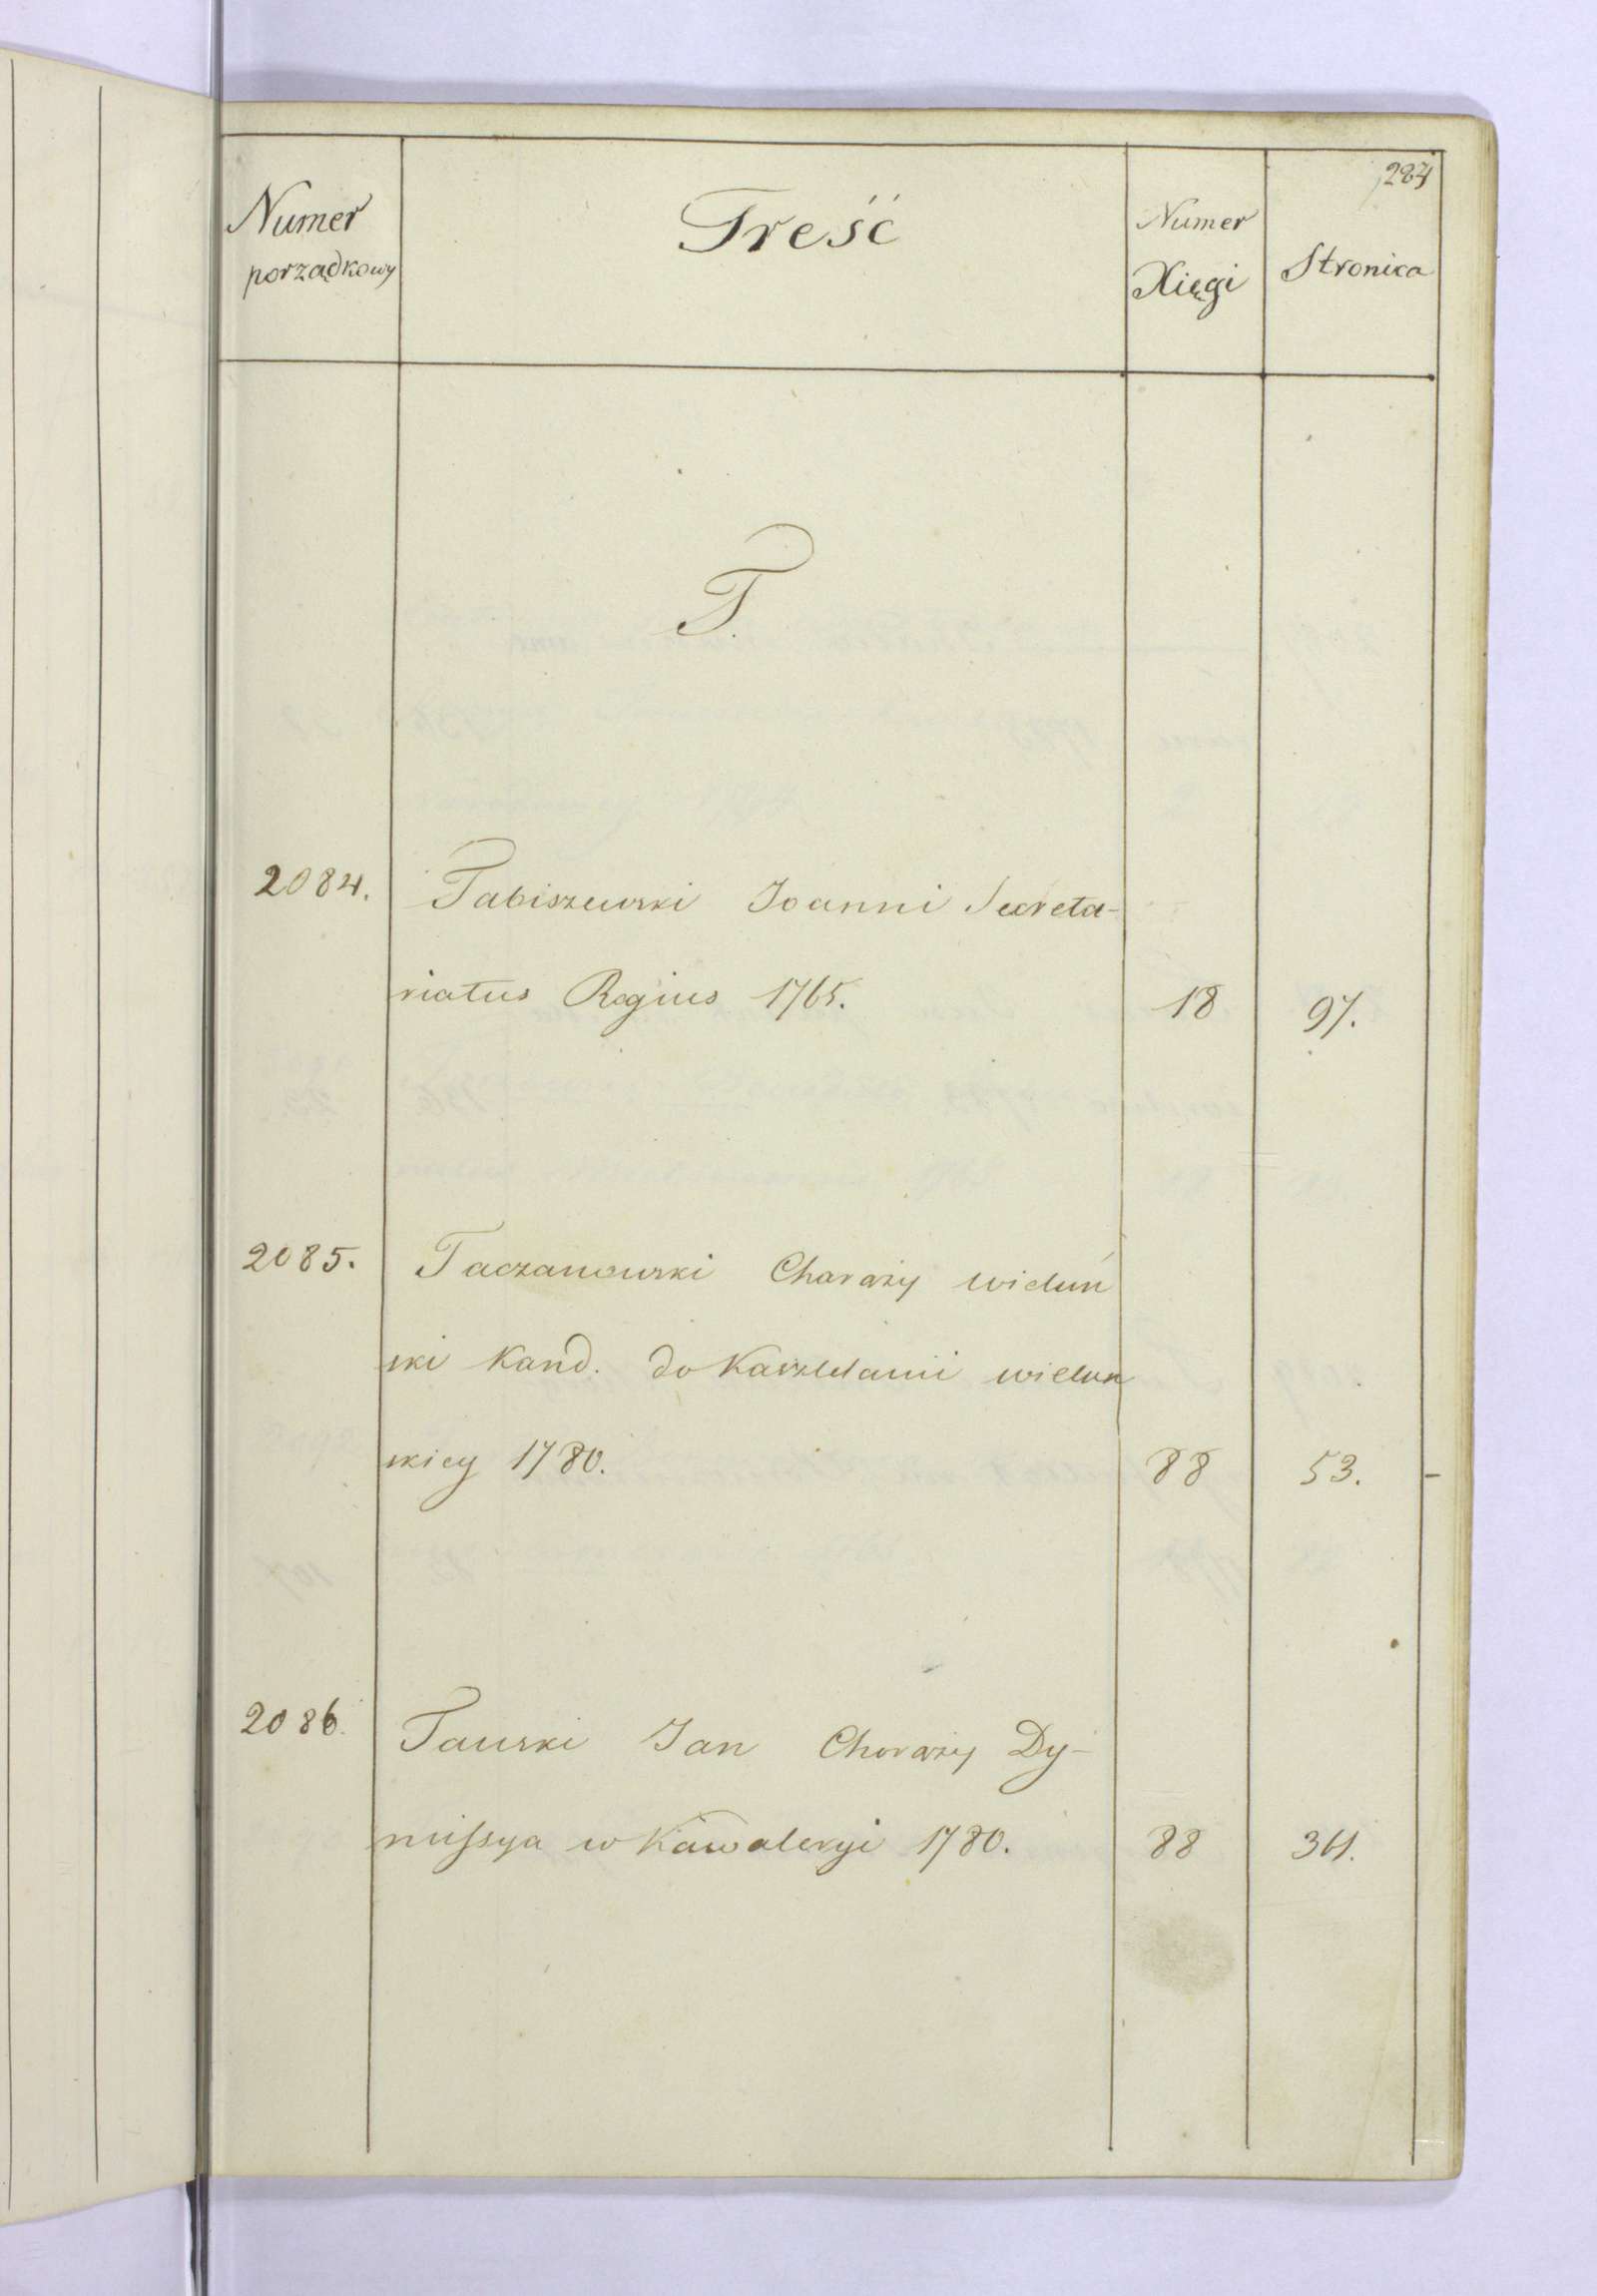 284
Numer porządkowy
Treść
Numer Xięgi
Stronica
T.
2084. Tabiszewski Joanni Secreta-
riatus Regius 1765. 18 97.
2085. Taczanowski Chorąży wieluń
ski Kand. do Kasztelanii wielun
skiey 1780. 88 53. -
2086. Tauski Jan Chorąży Dy-
missya w Kawaleryi 1780. 88